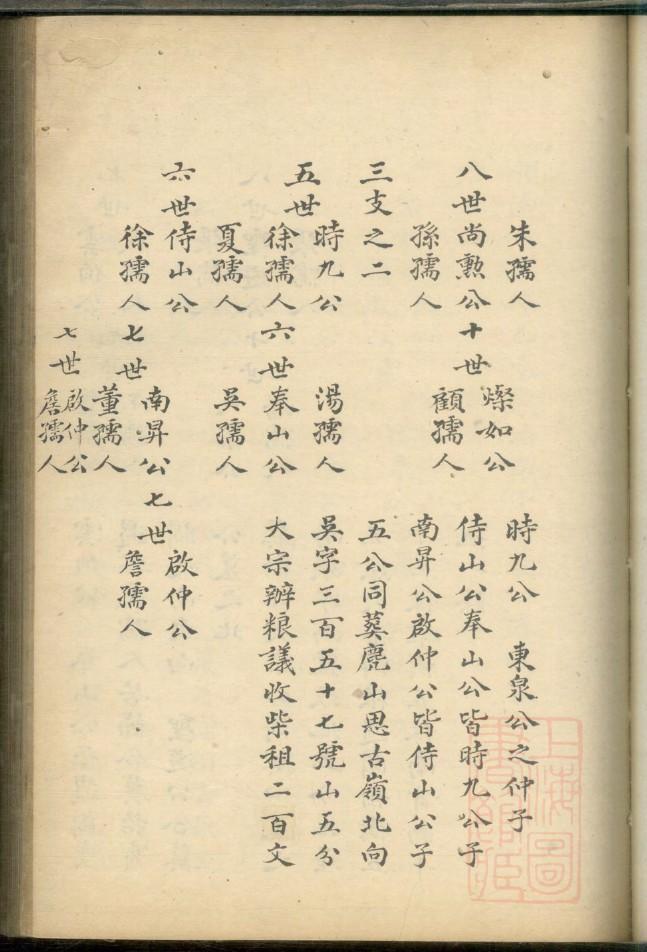 朱孺人
八世尚勲公
孫孺人
十世
燦如公
顧孺人
時九公　東泉公之仲子
侍山公奉山公皆時九公子
南昇公啟仲公皆侍山公子
五公同葬麂山思古嶺北向
吳字三百五十七號山五分
大宗辦粮議收柴租二百文
三支之二
五世
時九公
徐孺人
夏孺人
六世
湯孺人
奉山公
吳孺人
六世
侍山公
徐孺人
七世
南昇公
董孺人
七世
啟仲公
詹孺人
七世
啟仲公
詹孺人
上海圖
書館藏